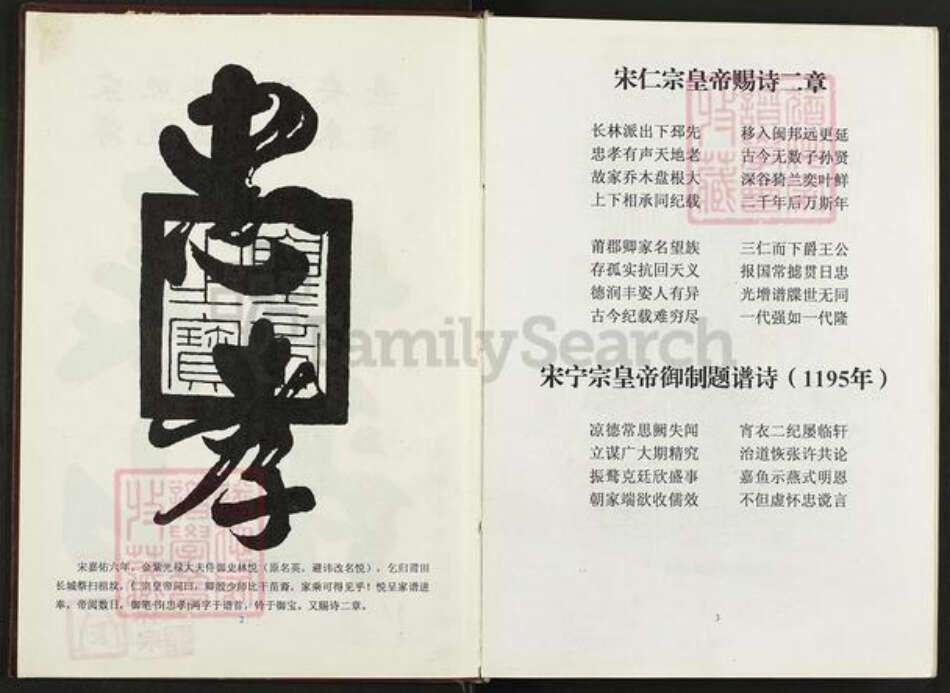 忠孝
宋嘉佑六年，金紫光禄大夫侍御史林悦（原名英，避讳改名悦），乞归莆田
长城祭扫祖坟，仁宗皇帝问曰，卿殷少师比干苗裔，家乘可得见乎！悦呈家谱进
奉，帝阅数日，御笔书忠孝两字于谱首，钤于御宝，又赐诗二章。
2
宋仁宗皇帝赐诗二章
长林派出下邳先 移入闽邦远更延
忠孝有声天地老 古今无数子孙贤
故家乔木盘根大 深谷猗兰奕叶鲜
上下相承同纪载 二千年后万斯年
莆郡卿家名望族 三仁而下爵王公
存孤实抗回天义 报国常摅贯日忠
德润丰姿人有异 光增谱牒世无同
古今纪载难穷尽 一代强如一代隆
FamilySearch
宋宁宗皇帝御制题谱诗（1195年）
凉德常思阙失闻 宵衣二纪屡临轩
立谋广大期精究 治道恢张许共论
振鹭克廷欣盛事 嘉鱼示燕式明恩
朝家端欲收儒效 不但虚怀忠谠言
3